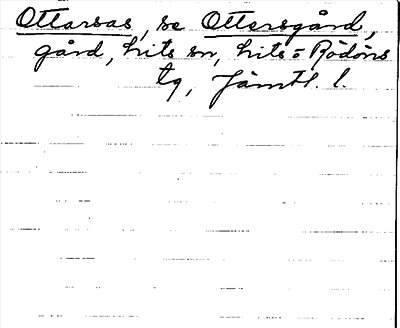 Ottarsas, se Ottersgård,
gård, hits sn, hits = Rödöns
tg, Jämtl. l.